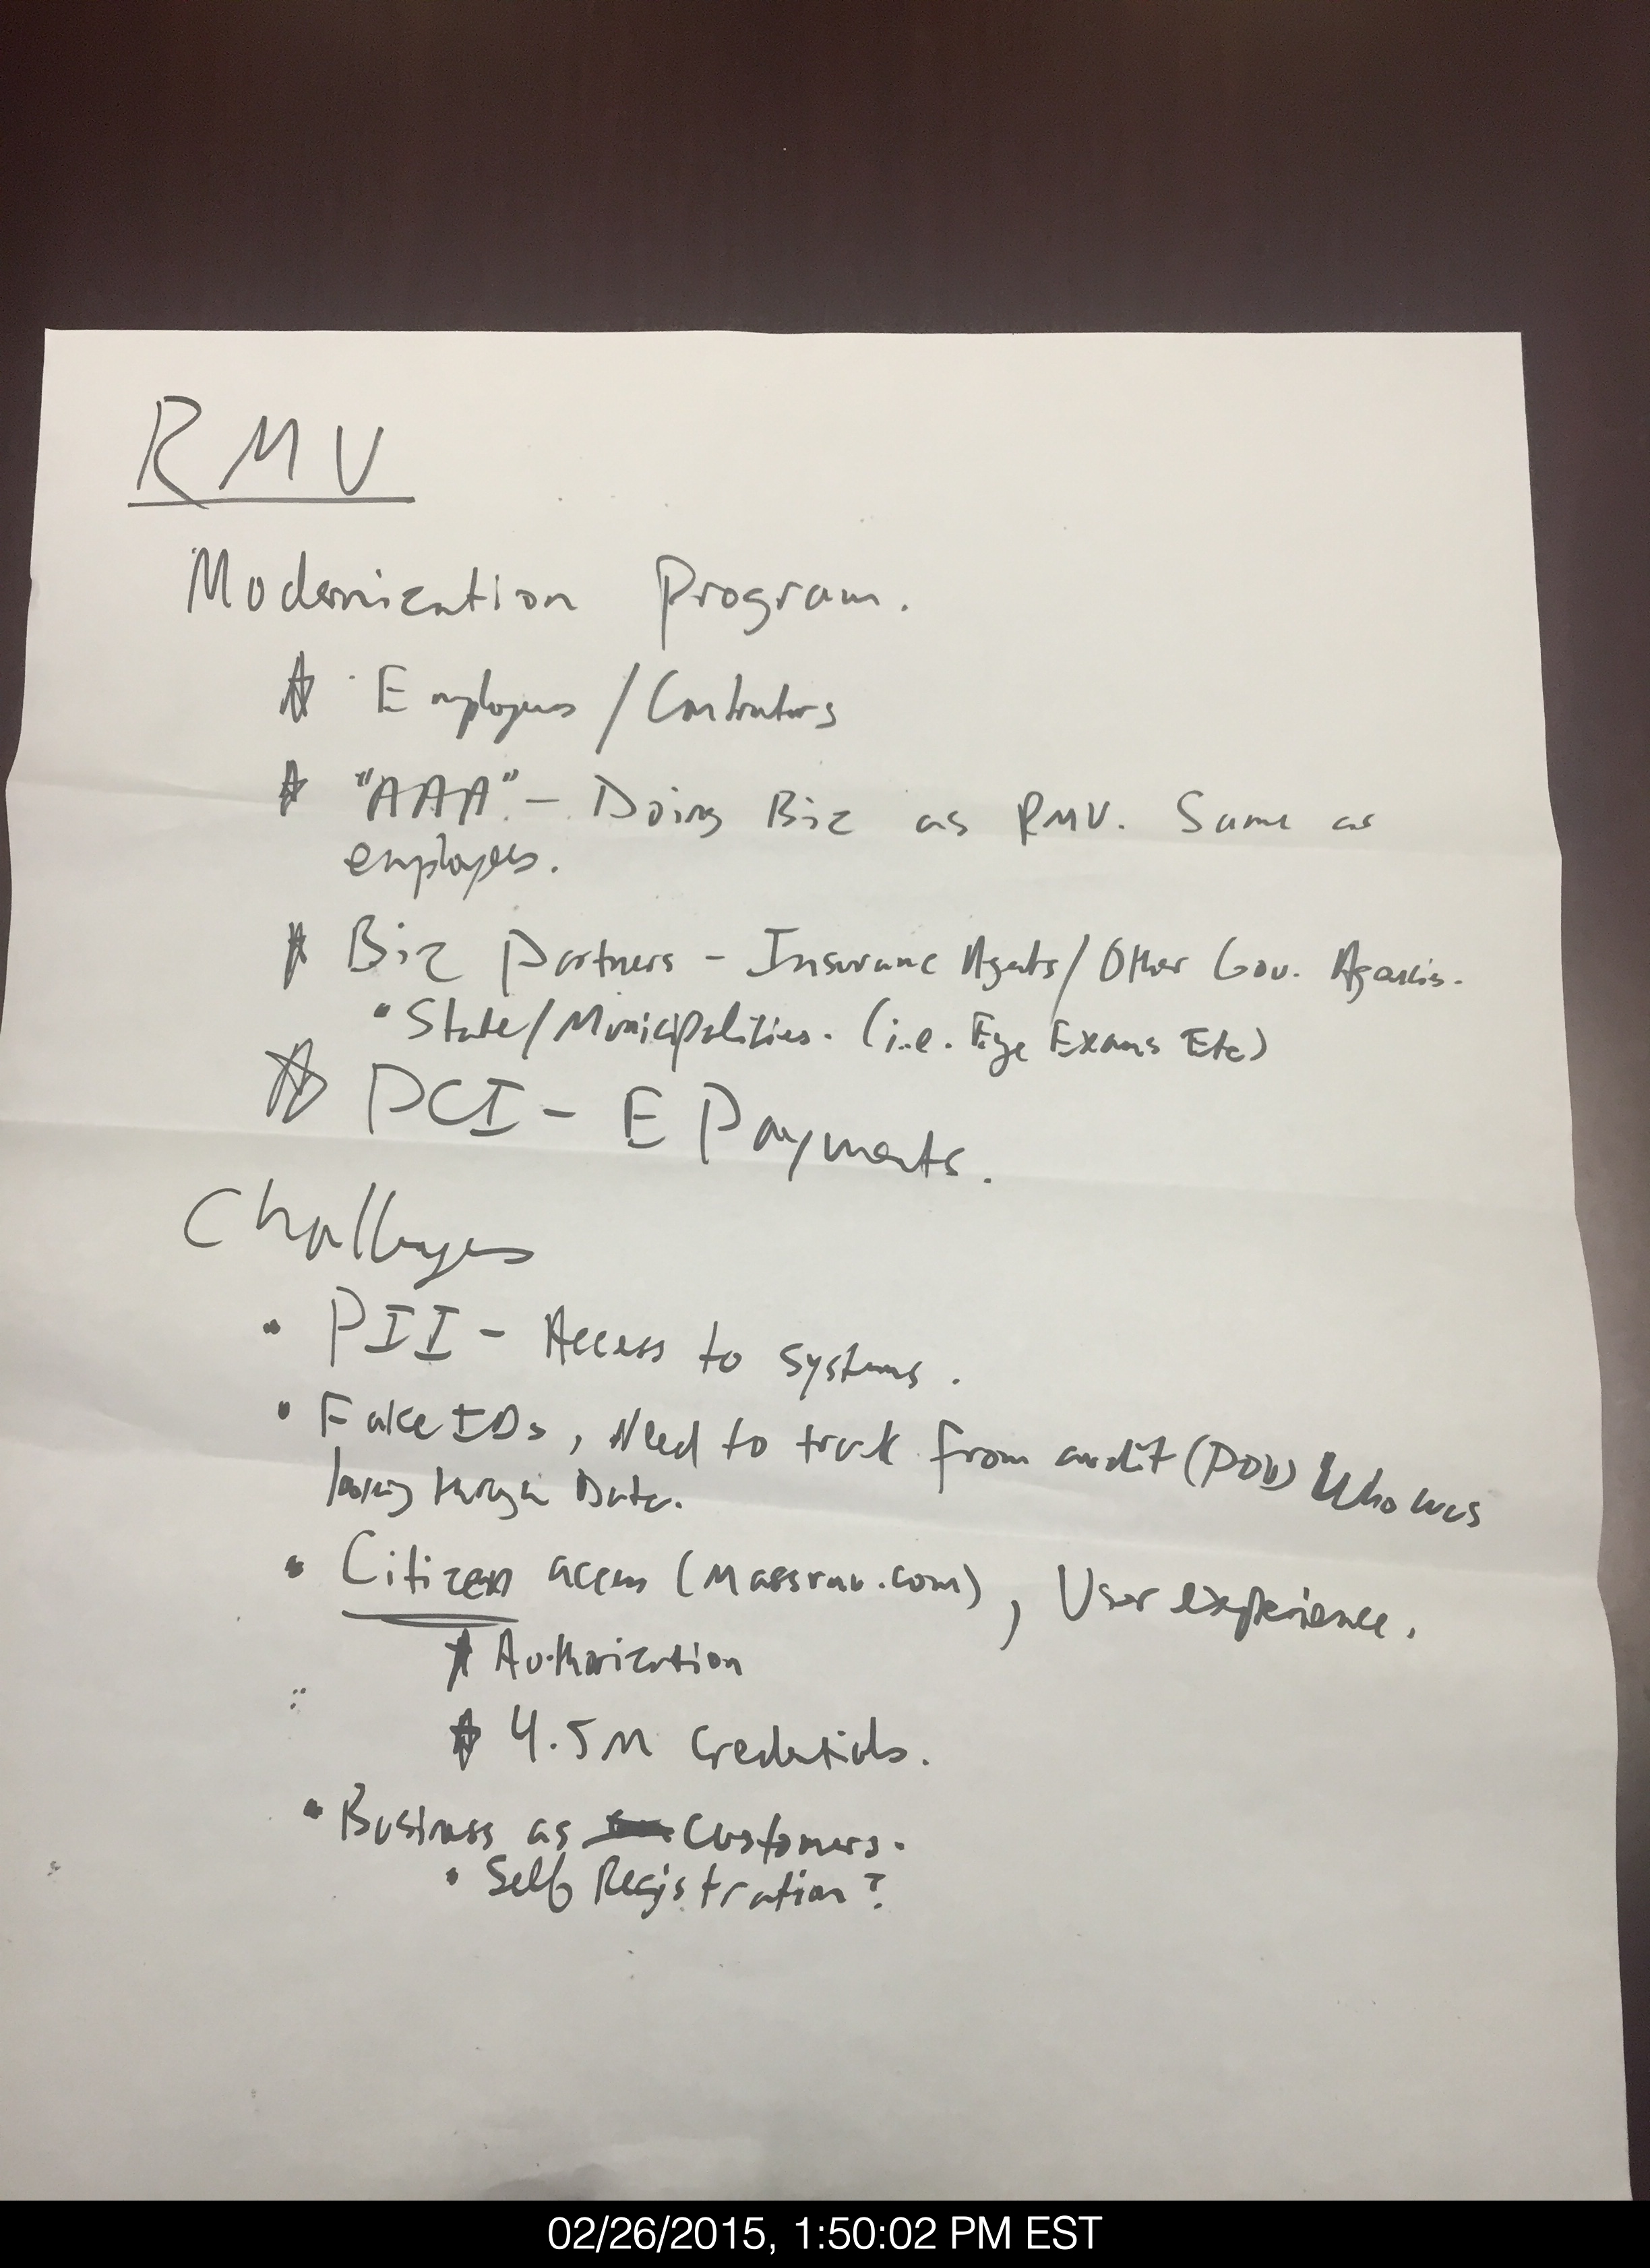 RMV
Modernization Program.
Employees / Contractors
"AAA" - Doing Biz as RMV. Same as
employees.
Biz Partners - Insurance Agents / Other Gov. Agencies.
• State / Municipalities. (i.e. Eye Exams Etc)
PCI - E Payments.
Challenges
• PII - Access to systems.
• Fake IDs, Need to track from audit ( ) Who was
looking through Data.
• Citizen access (Massrmv.com), User experience.
Authorization
4.5M Credentials.
• Business as Customers.
• Self Registration?
02/26/2015, 1:50:02 PM EST